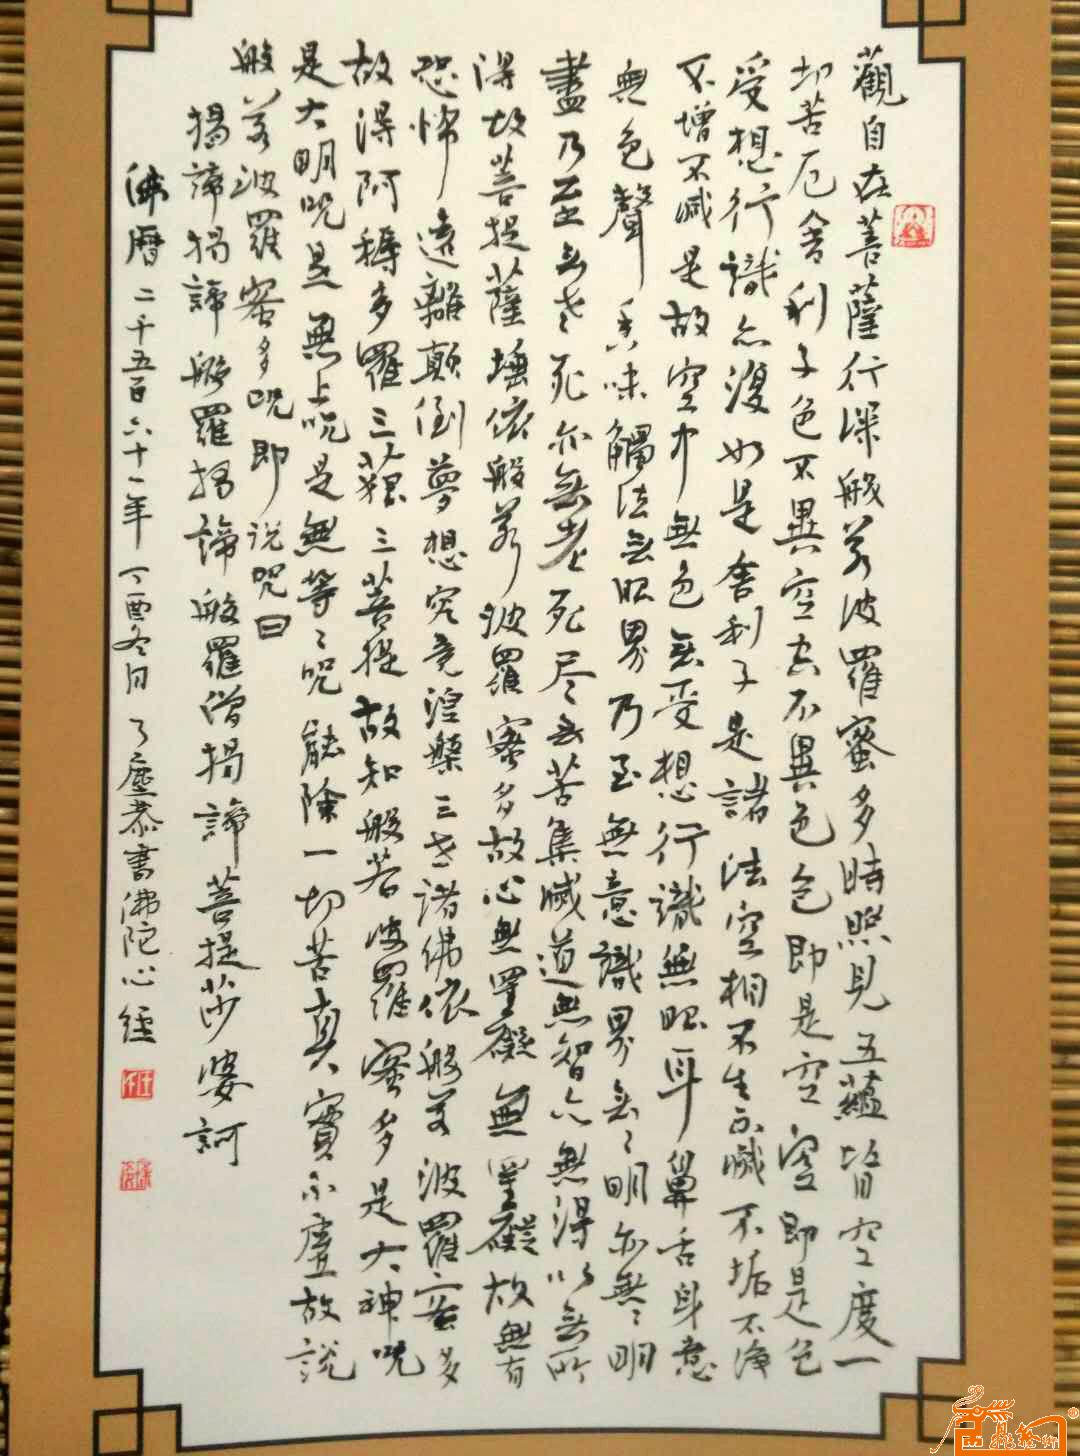 觀自在菩薩行深般若波羅蜜多時照見五蘊皆空度一
切苦厄舍利子色不異空空不異色色即是空空即是色
受想行識亦復如是舍利子是諸法空相不生不滅不垢不淨
不增不減是故空中無色無受想行識無眼耳鼻舌身意
無色聲香味觸法無眼界乃至無意識界無々明亦無々明
盡乃至無老死亦無老死尽無苦集滅道無智亦無得以無所
得故菩提薩埵依般若波羅蜜多故心無罣礙無罣礙故無有
恐怖遠離顛倒夢想究竟涅槃三世諸佛依般若波羅蜜多
故得阿耨多羅三藐三菩提故知般若波羅蜜多是大神呪
是大明呪是無上呪是無等々呪能除一切苦真實不虛故說
般若波羅蜜多呪即说呪曰
揭諦揭諦般羅揭諦般羅僧揭諦菩提莎婆訶
佛曆二千五百六十一年丁酉冬月了塵恭書佛陀心經